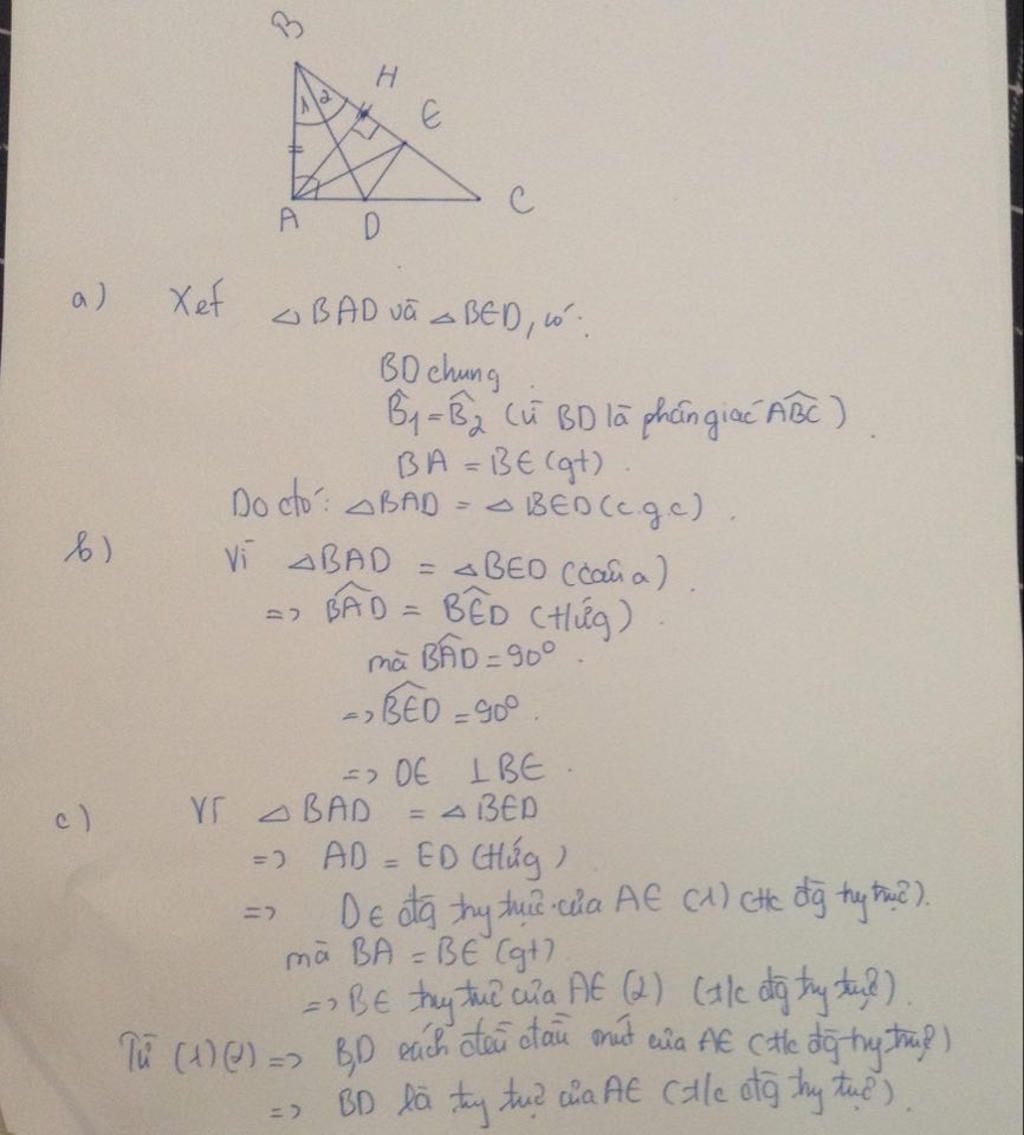 B
H
E
1 2
A
D
C
a) Xét △BAD và △BED, có:
BD chung.
B̂1 = B̂2 (vì BD là phân giác ABC̑)
BA = BE (gt).
Do đó: △BAD = △BED (c.g.c).
b) Vì △BAD = △BED (câu a).
=> BÂD = BÊD (tứg).
mà BÂD = 90°.
=> BÊD = 90°.
=> DE ⊥ BE.
c) Vì △BAD = △BED
=> AD = ED (tứg)
=> D ∈ đg tny trực của AE (1) (t/c đg tny trực).
mà BA = BE (gt)
=> B ∈ tny trực của AE (2) (t/c đg tny trực).
Từ (1)(2) => B,D cách đều đầu mút của AE (t/c đg tny trực)
=> BD là tny trực của AE (t/c đg tny trực).